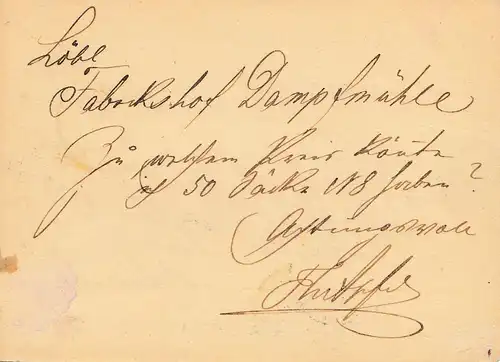 Löbl
Fabrikshof Dampfmühle
Zu welchem Preis könte
ich 50 Säcke N8 haben?
Achtungsvoll